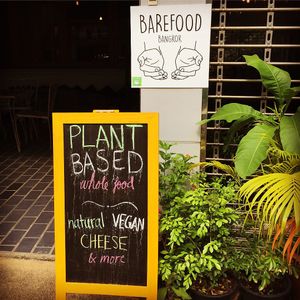 BAREFOOD
BANGKOK
PLANT
BASED
whole food
natural VEGAN
CHEESE
& more